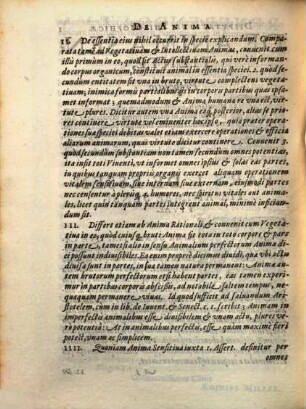 DE ANIMA
II. De essentia eius nihil occurrit in specie explicandum. Comparata tamen ad Vegetatiuam & Intellectiuam Animas, conuenit cum
illis primùm in eo, quòd sit actus substantialis, qui verè informando corpus organicum, constituit animal in essentia speciei. 2. quòd secundum
entitatem siue in bruto, virtute complectens vegetatiuam, inimica formis partialibus
informat; quemadmodum & Anima humana re vnica, virtute plures. Dicitur autem vna anima
continere virtute vel eminenter
suæ speciei debitas valet etiam exercere operationes & officia
aliarum animarum, quas virtute dicitur continere 3. Conuenit
quòd secundùm substantiam suam tamen secundùm omnes potentias,
tota insit toti Viuenti, vt informet omnes ipsius & solas eas partes,
in quibus tanquam proprijs organis exercet aliquam operationem
vitalem sensitiuam, siue internam siue externam, eiusmodi partes
nec censentur à plerisq. humores, nec spiritus vitales aut animales,
licet quin tanquam partes integrent animal, minimè inficiandum
sit.
III. Differt etiam ab Anima Rationali, & conuenit cum Vegetatiua
in eo, quòd cuiusq. brutis Anima sit tota in toto corpore & pars
in parte; tametsi alio in sensu Animalium perfectorum Animæ dici
possint indiuisibiles. Ea enim propriè dicimus diuidi, qua vbi actu
diuisa sunt in partes, in suis tamen natura permanent: Anima autem
brutorum perfectorum etsi habeat partes, eas tamen experimur
in partibus corporis abscissis, ad notabile saltem tempus, nequaquam
permanere viuas. Id quod suffecit ad saluandum Aristotelem,
cum in lib. de Iuuent. & Senect. c. 1. scribit: Animam in
animalibus imperfectis esse diuisibilem & vnam actu, plures verò
potentiâ: At in animalibus perfectis, esse quàm maximè fieri
potest, vnam ac simplicem.
IIII. Quoniam Anima Sensitiua iuxta 1. Assert. definitur per
omnes